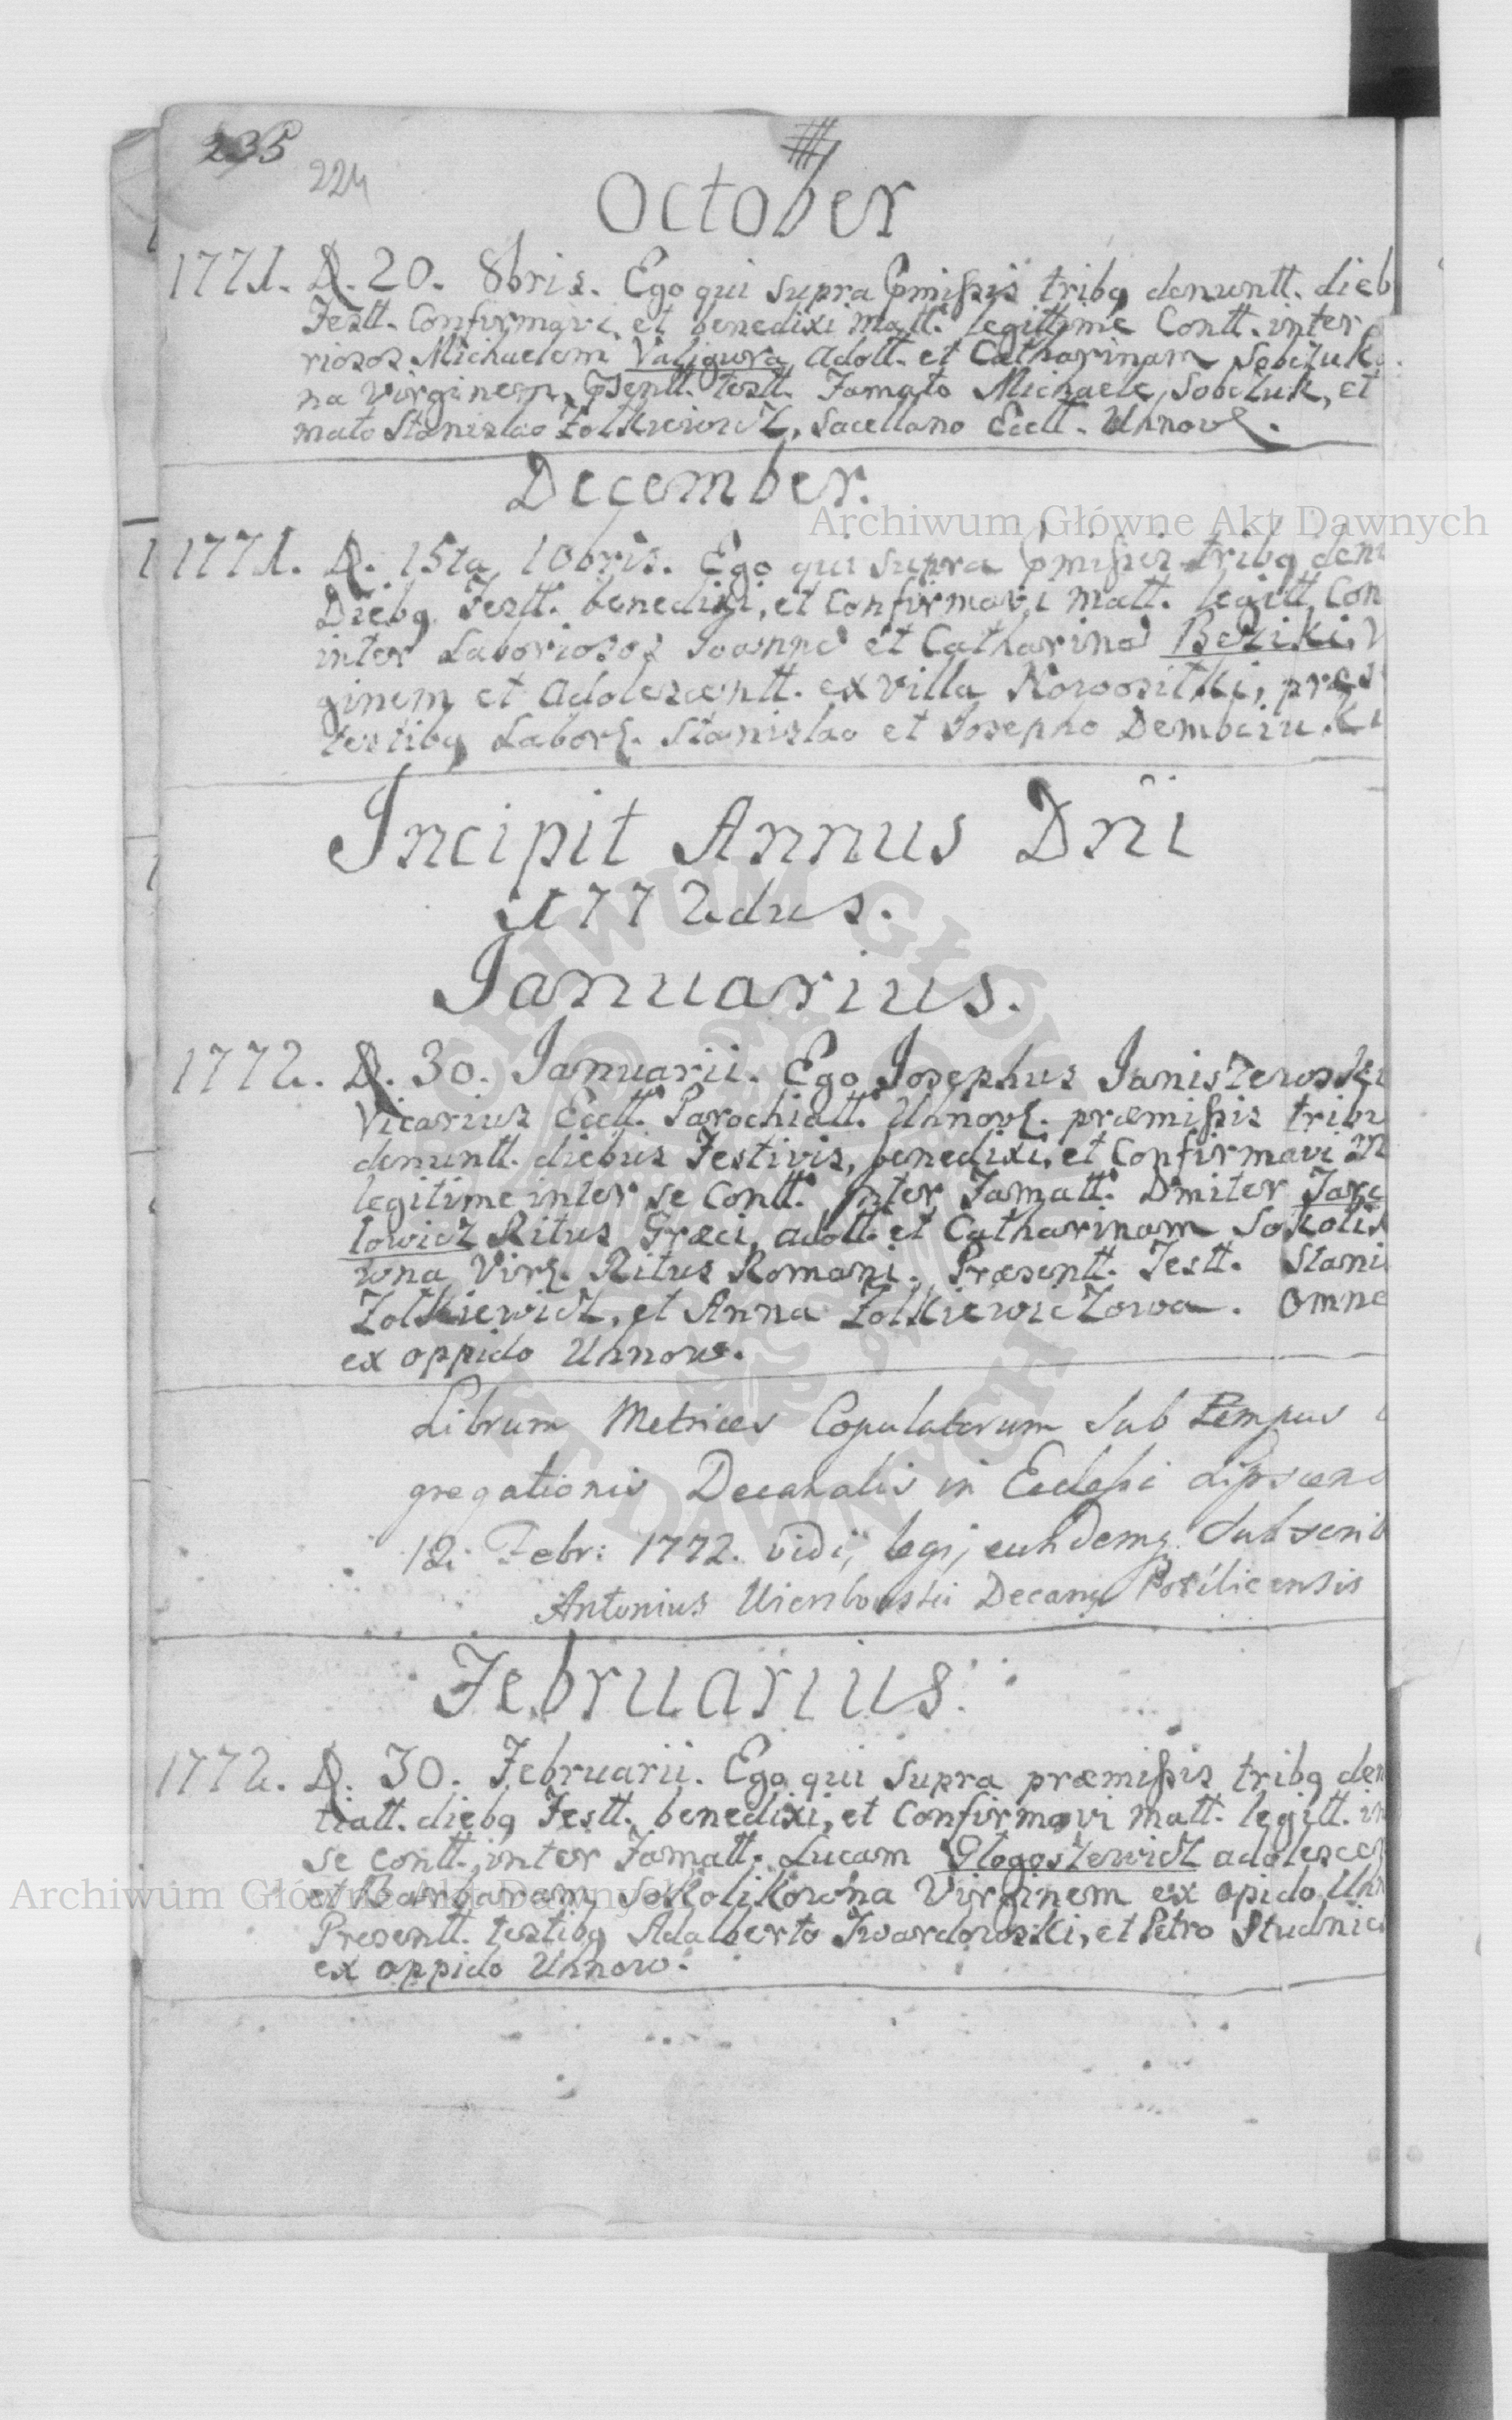 235
224
October
1771. D. 20. 8bris. Ego qui supra pmissis tribq denuntt. dieb
Festt. Confirmavi, et benedixi matt. legittime Contt. inter
riosos Michaelem Valigura Adott. et Catharinam Sobczuk
na Virginem, psentt. testt. Famato Michaele Sobczuk, et
mato Stanislao Zolkiewicz, Sacellano Eccll. Uhnov.
December.
Archiwum Główne Akt Dawnych
1771. D. 15ta 10bris. Ego qui supra pmissis tribq den
Diebq Festt. benedixi, et Confirmavi matt. legitt. Con
inter Laboriosos Joanne et Catharina Beziki, V
ginem et Adolescentt. ex villa Nowosiłki, præs
testibq Labor. Stanislao et Josepho Dembciu
Incipit Annus Dni
1772dus.
Januarius.
1772. D. 30. Januarii. Ego Josephus Janiszewski
Vicarius Eccll. Parochiall. Uhnov. præmissis tribu
denuntt. diebus Festivis, benedixi, et Confirmavi M
legitime inter se Contt. inter Famatt. Dmiter Jare
lowicz Ritus Græci, adott. et Catharinam Sokolik
wna Virg. Ritus Romani. Præsentt. Testt. Stani
Zolkiewicz, et Anna Zolkiewiczowa. Omne
ex oppido Uhnow.
Librum Metrices Copulatorum sub tempus
gregationis Decanalis in Ecclesi Lipscens
12. Febr: 1772. vidi, legi, eundemq. Subscrib
Antonius Decanq Potilicensis
Februarius.
1772. D. 30. Februarii. Ego qui supra præmissis tribq den
tiatt. diebq Festt. benedixi, et Confirmavi matt. legitt. in
se contt. inter Famatt. Lucam Glogoszewicz adolescen
et Barbaram Sokolikowna Virginem ex opido Uhn
Presentt. testibq Adalberto Twardowski, et Petro Studnic
ex oppido Uhnow.
Archiwum Główne Akt Dawnych